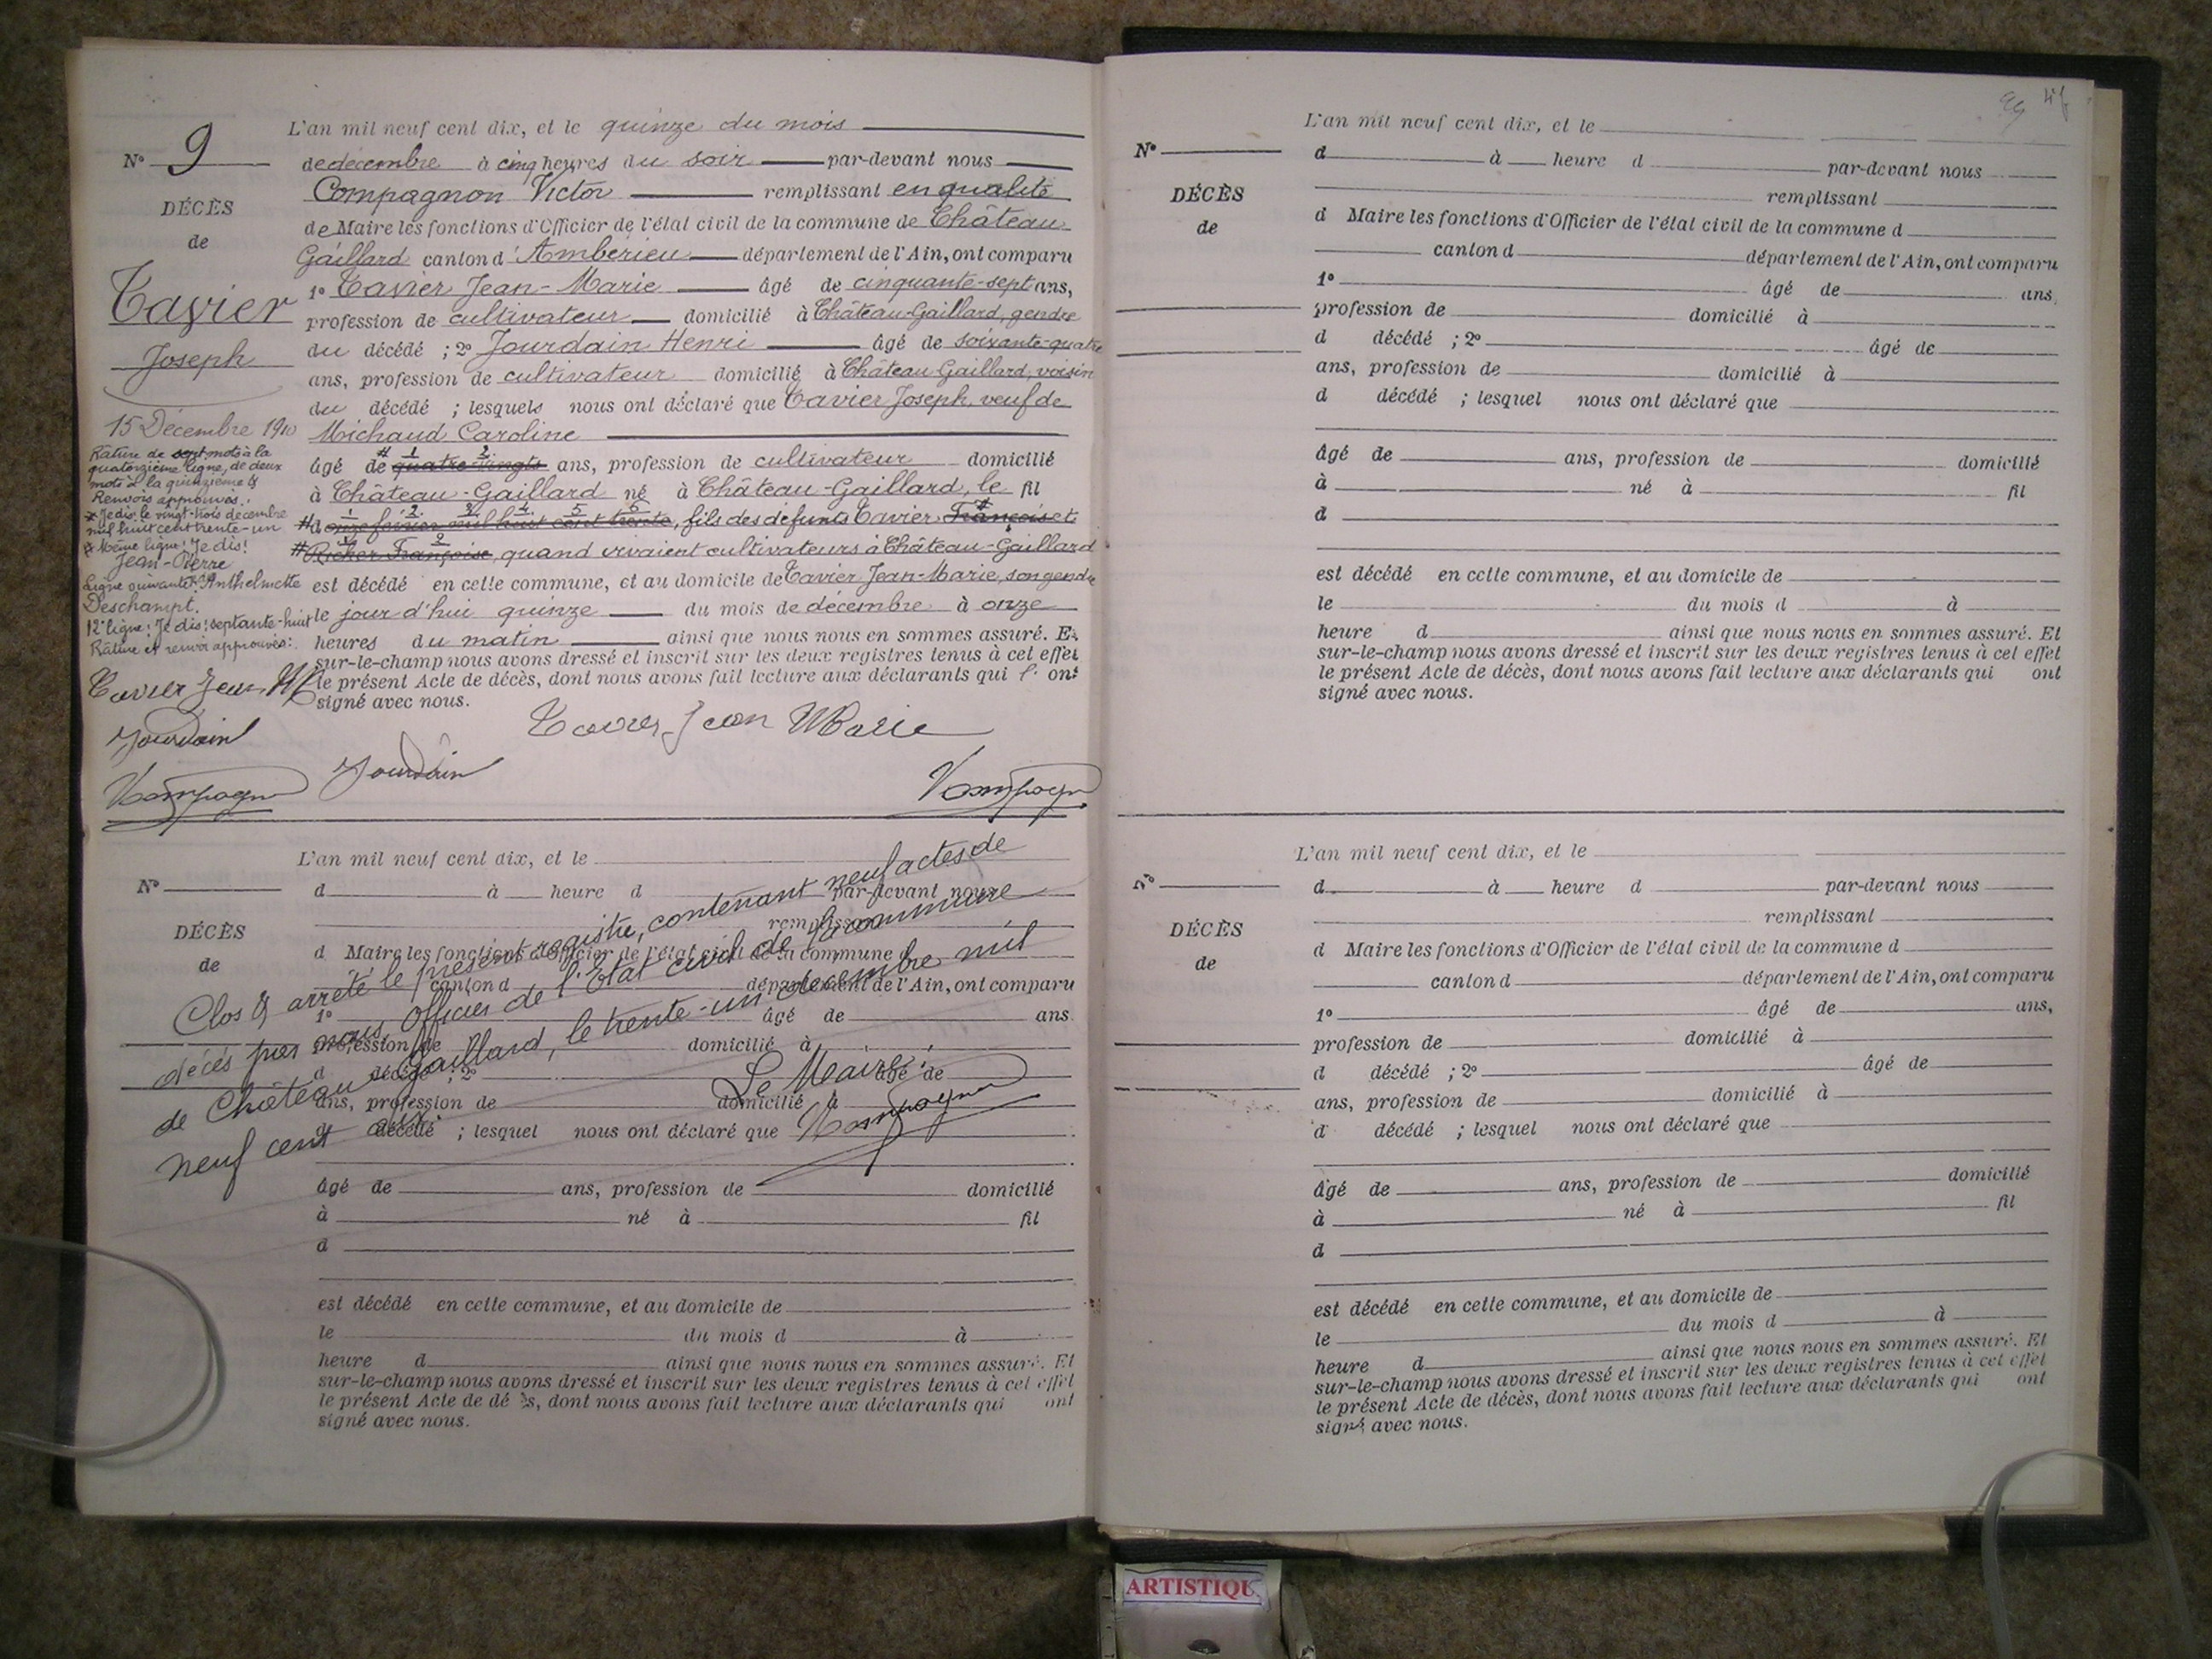 L'an mil neuf cent dix, et le quinze du mois
N° 9
de décembre à cinq heures du soir par-devant nous
Compagnon Victor remplissant en qualité
DÉCÈS
de Maire les fonctions d'Officier de l'état civil de la commune de Château
de
Gaillard canton d'Ambérieu département de l'Ain, ont comparu
Tavier
1° Tavier Jean-Marie âgé de cinquante-sept ans,
profession de cultivateur domicilié à Château-Gaillard, gendre
Joseph
du décédé ; 2° Jourdain Henri âgé de soixante-quatre
ans, profession de cultivateur domicilié à Château-Gaillard, voisin
du décédé ; lesquels nous ont déclaré que Tavier Joseph, veuf de
15 Décembre 1910
Michaud Caroline
âgé de quatre-vingts ans, profession de cultivateur domicilié
à Château-Gaillard né à Château-Gaillard, le fil
d onze février mil huit cent trente, fils des défunts Tavier François et
Richer Françoise, quand vivaient cultivateurs à Château-Gaillard
est décédé en cette commune, et au domicile de Tavier Jean-Marie, son gendre
le jour d'hui quinze du mois de décembre à onze
heures du matin ainsi que nous nous en sommes assuré. Et
sur-le-champ nous avons dressé et inscrit sur les deux registres tenus à cet effet
le présent Acte de décès, dont nous avons fait lecture aux déclarants qui l' ont
signé avec nous.
Rature de sept mots à la
quatorzième ligne, de deux
mots à la quinzième &
Renvois approuvés.
Je dis le vingt-trois décembre
mil huit cent trente-un
Même ligne: Je dis!
Jean-Pierre
Ligne suivante: Anthelmette
Deschampt.
12e ligne: Je dis: septante-huit
Rature et renvoi approuvés:
Tavier Jean M
Jourdain
Compagnon
Tavier Jean Marie
Jourdain
V Compagnon
L'an mil neuf cent dix, et le
N°
d à heure d par-devant nous
remplissant
DÉCÈS
d Maire les fonctions d'Officier de l'état civil de la commune
de
canton d département de l'Ain, ont comparu
1° âgé de ans.
profession de domicilié à
d décédé ; 2° âgé de
ans, profession de domicilié à
d décédé ; lesquel nous ont déclaré que
Clos & arrêté le présent registre, contenant neuf actes de
décés par nous, Officier de l'Etat civil de la commune
de Château-Gaillard, le trente-un décembre mil
neuf cent dix.
Le Maire:
V Compagnon
âgé de ans, profession de domicilié
à né à fil
d
est décédé en cette commune, et au domicile de
le du mois d à
heure d ainsi que nous nous en sommes assuré. Et
sur-le-champ nous avons dressé et inscrit sur les deux registres tenus à cet effet
le présent Acte de décès, dont nous avons fait lecture aux déclarants qui ont
signé avec nous.
L'an mil neuf cent dix, et le
N°
d à heure d par-devant nous
remplissant
DÉCÈS
d Maire les fonctions d'Officier de l'état civil de la commune d
de
canton d département de l'Ain, ont comparu
1° âgé de ans.
profession de domicilié à
d décédé ; 2° âgé de
ans, profession de domicilié à
d décédé ; lesquel nous ont déclaré que
âgé de ans, profession de domicilié
à né à fil
d
est décédé en cette commune, et au domicile de
le du mois d à
heure d ainsi que nous nous en sommes assuré. Et
sur-le-champ nous avons dressé et inscrit sur les deux registres tenus à cet effet
le présent Acte de décès, dont nous avons fait lecture aux déclarants qui ont
signé avec nous.
L'an mil neuf cent dix, et le
N°
d à heure d par-devant nous
remplissant
DÉCÈS
d Maire les fonctions d'Officier de l'état civil de la commune d
de
canton d département de l'Ain, ont comparu
1° âgé de ans,
profession de domicilié à
d décédé ; 2° âgé de
ans, profession de domicilié à
d décédé ; lesquel nous ont déclaré que
âgé de ans, profession de domicilié
à né à fil
d
est décédé en cette commune, et au domicile de
le du mois d à
heure d ainsi que nous nous en sommes assuré. Et
sur-le-champ nous avons dressé et inscrit sur les deux registres tenus à cet effet
le présent Acte de décès, dont nous avons fait lecture aux déclarants qui ont
signé avec nous.
ARTISTIQU